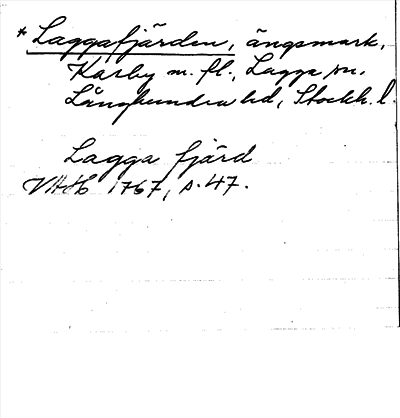 * Laggafjärden, ängsmark,
Karby m. fl., Lagga sn,
Långhundra hd, Stockh. l.
Lagga fjärd
VAH 1767, s. 47.